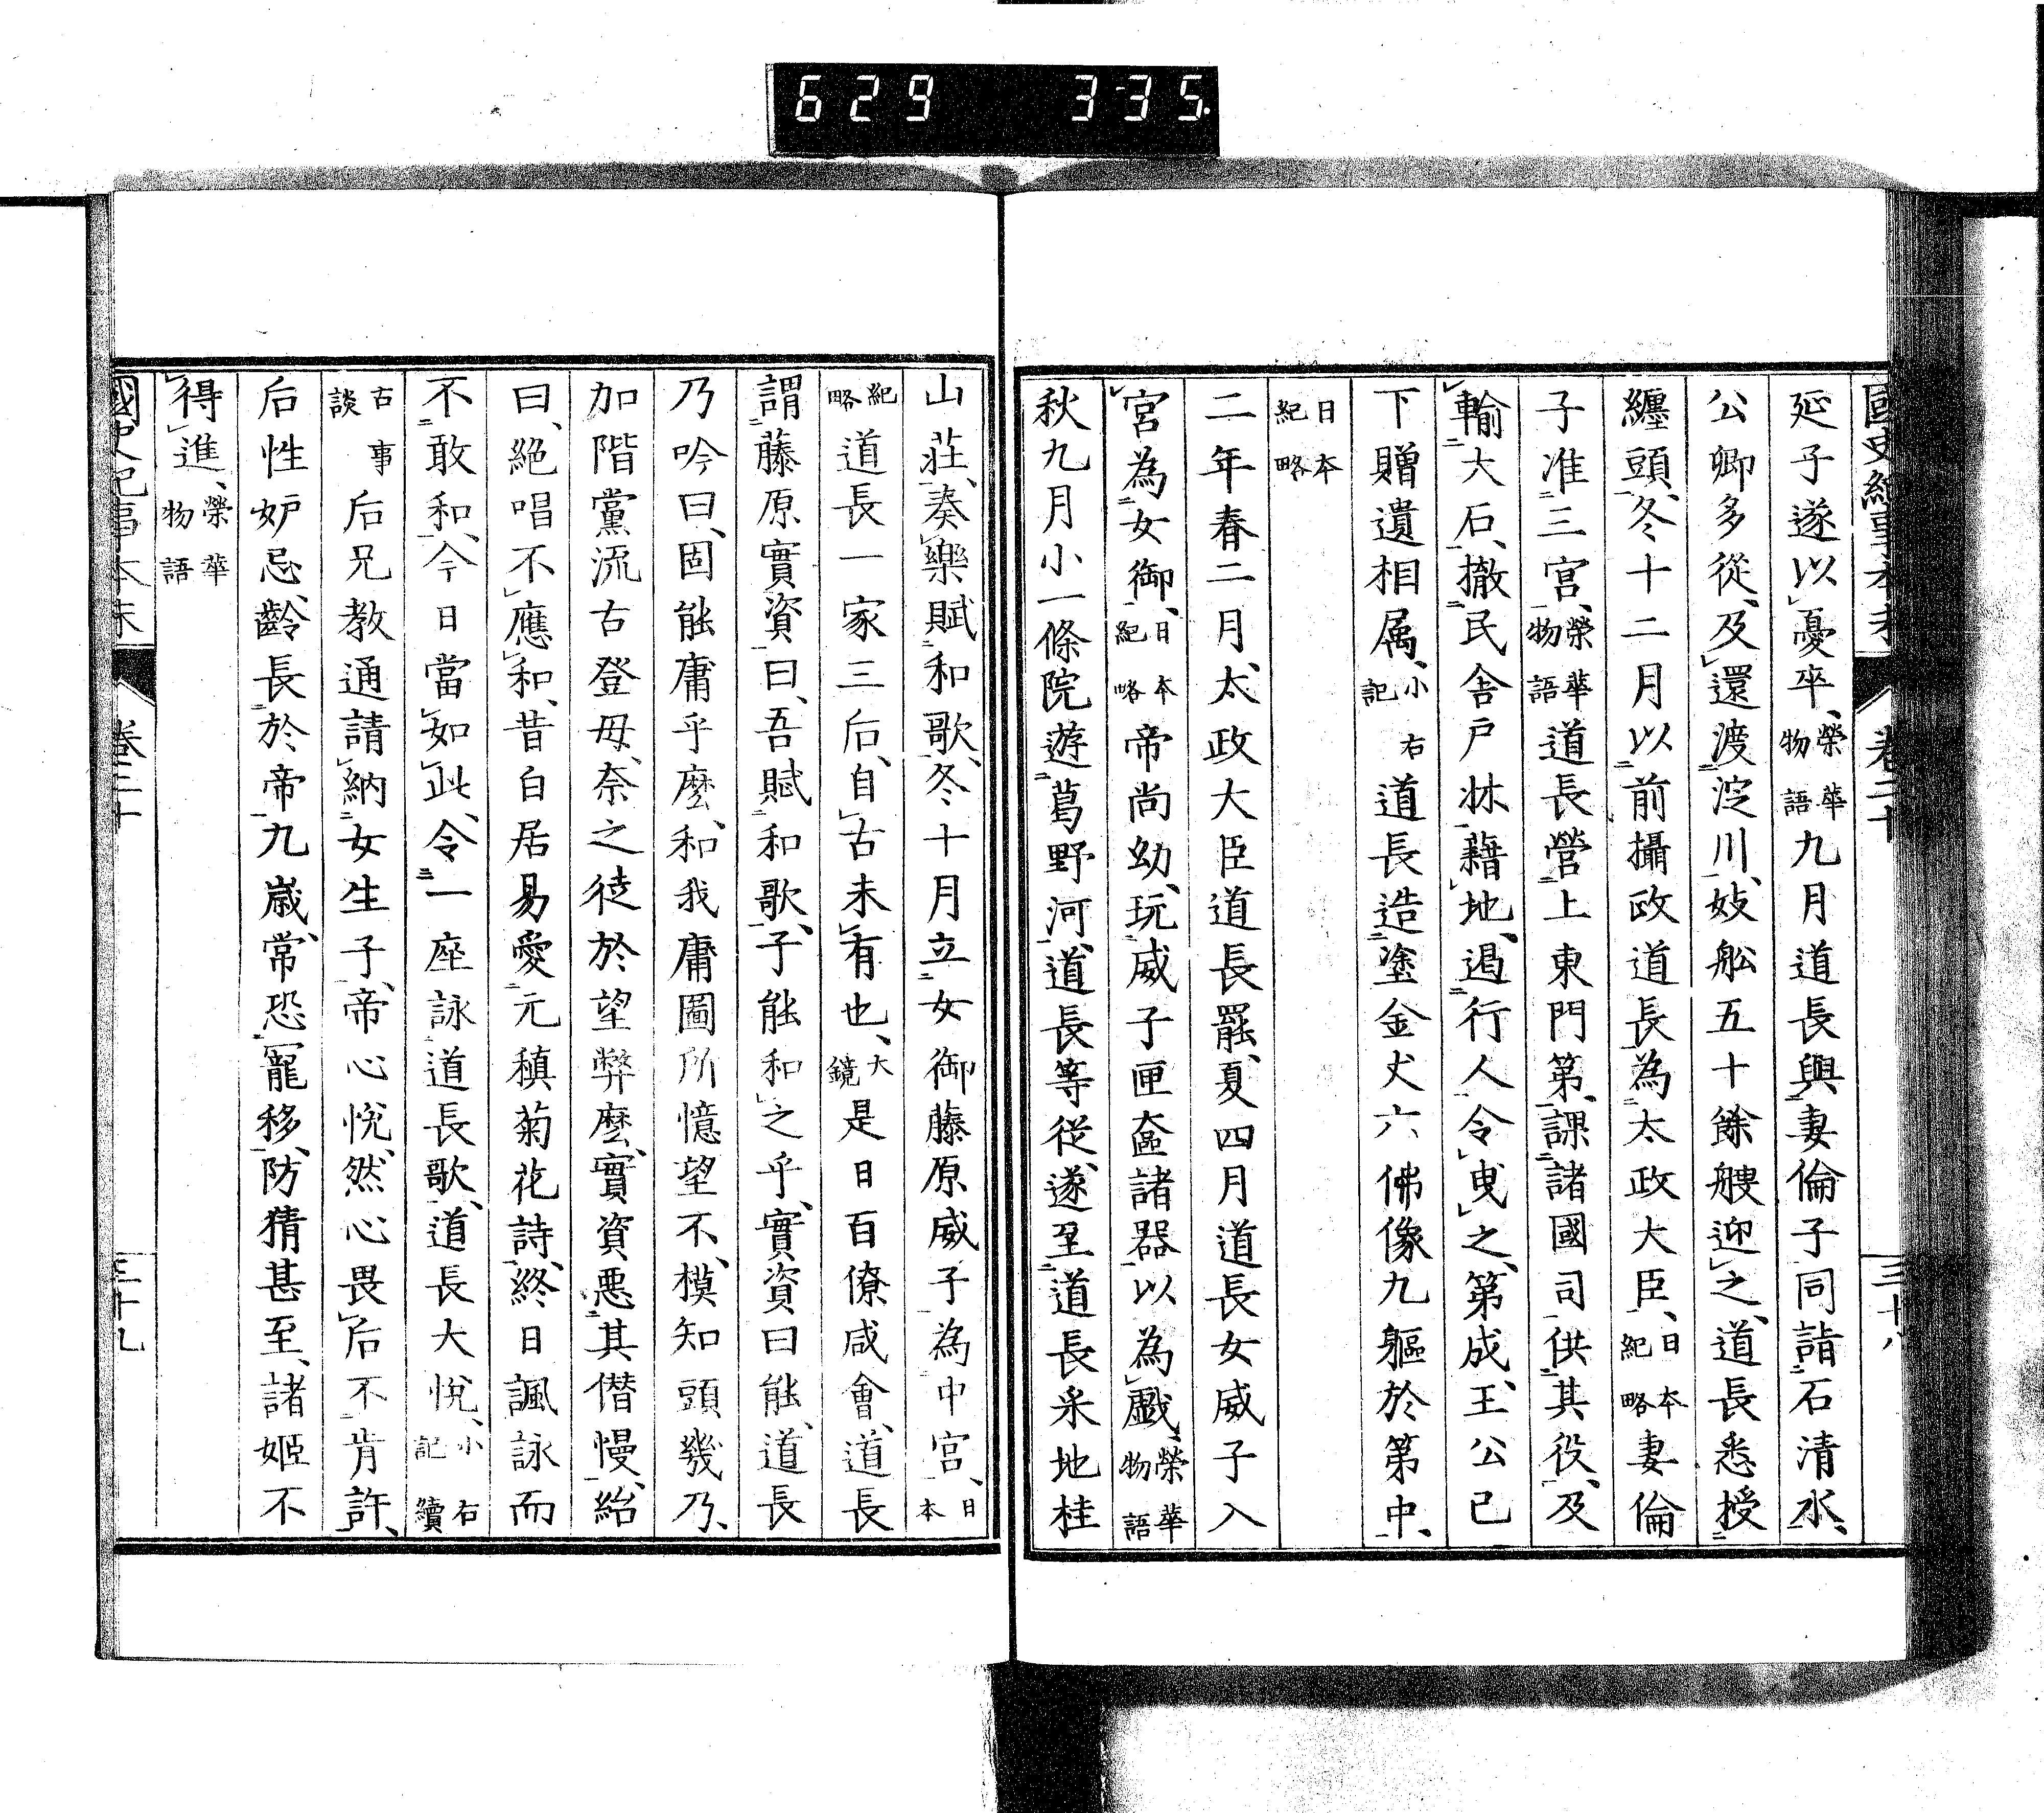 629 335
國史紀事本末 卷二十 三十八
延子遂以憂卒、榮華物語九月道長與妻倫子同詣石清水、
公卿多從、及還渡淀川、妓舩五十餘艘迎之、道長悉授
纏頭、冬十二月以前攝政道長為太政大臣、日本紀略妻倫
子准三宮、榮華物語道長營上東門第、課諸國司供其役、及
輸大石、撤民舎戸牀藉地、遏行人令曳之、第成、王公已
下贈遺相属、小右記道長造塗金丈六佛像九軀於第中、
日本紀略
二年春二月、太政大臣道長罷、夏四月道長女威子入
宮為女御、日本紀略帝尚幼、玩威子匣奩諸器以為戲、榮華物語
秋九月小一條院遊葛野河、道長等從、遂至道長采地桂
山莊、奏樂賦和歌、冬十月立女御藤原威子為中宮、日本
紀略道長一家三后、自古未有也、大鏡是日百僚咸會、道長
謂藤原實資曰、吾賦和歌、子能和之乎、實資曰能、道長
乃吟曰、固能庸乎麼、和我庸圖所憶望不、模知頭幾乃、
加階黨流古登毋、奈之徒於望弊麼、實資悪其僭慢、紿
曰、絶唱不應和、昔白居易愛元稹菊花詩、終日諷詠而
不敢和、今日當如此、令一座詠道長歌、道長大悅、小右記續
古事談后兄教通請納女生子、帝心悅、然心畏后不肯許、
后性妒忌、齡長於帝九歳、常恐寵移、防猜甚至、諸姬不
得進、榮華物語
國史紀事本末 卷二十 三十九